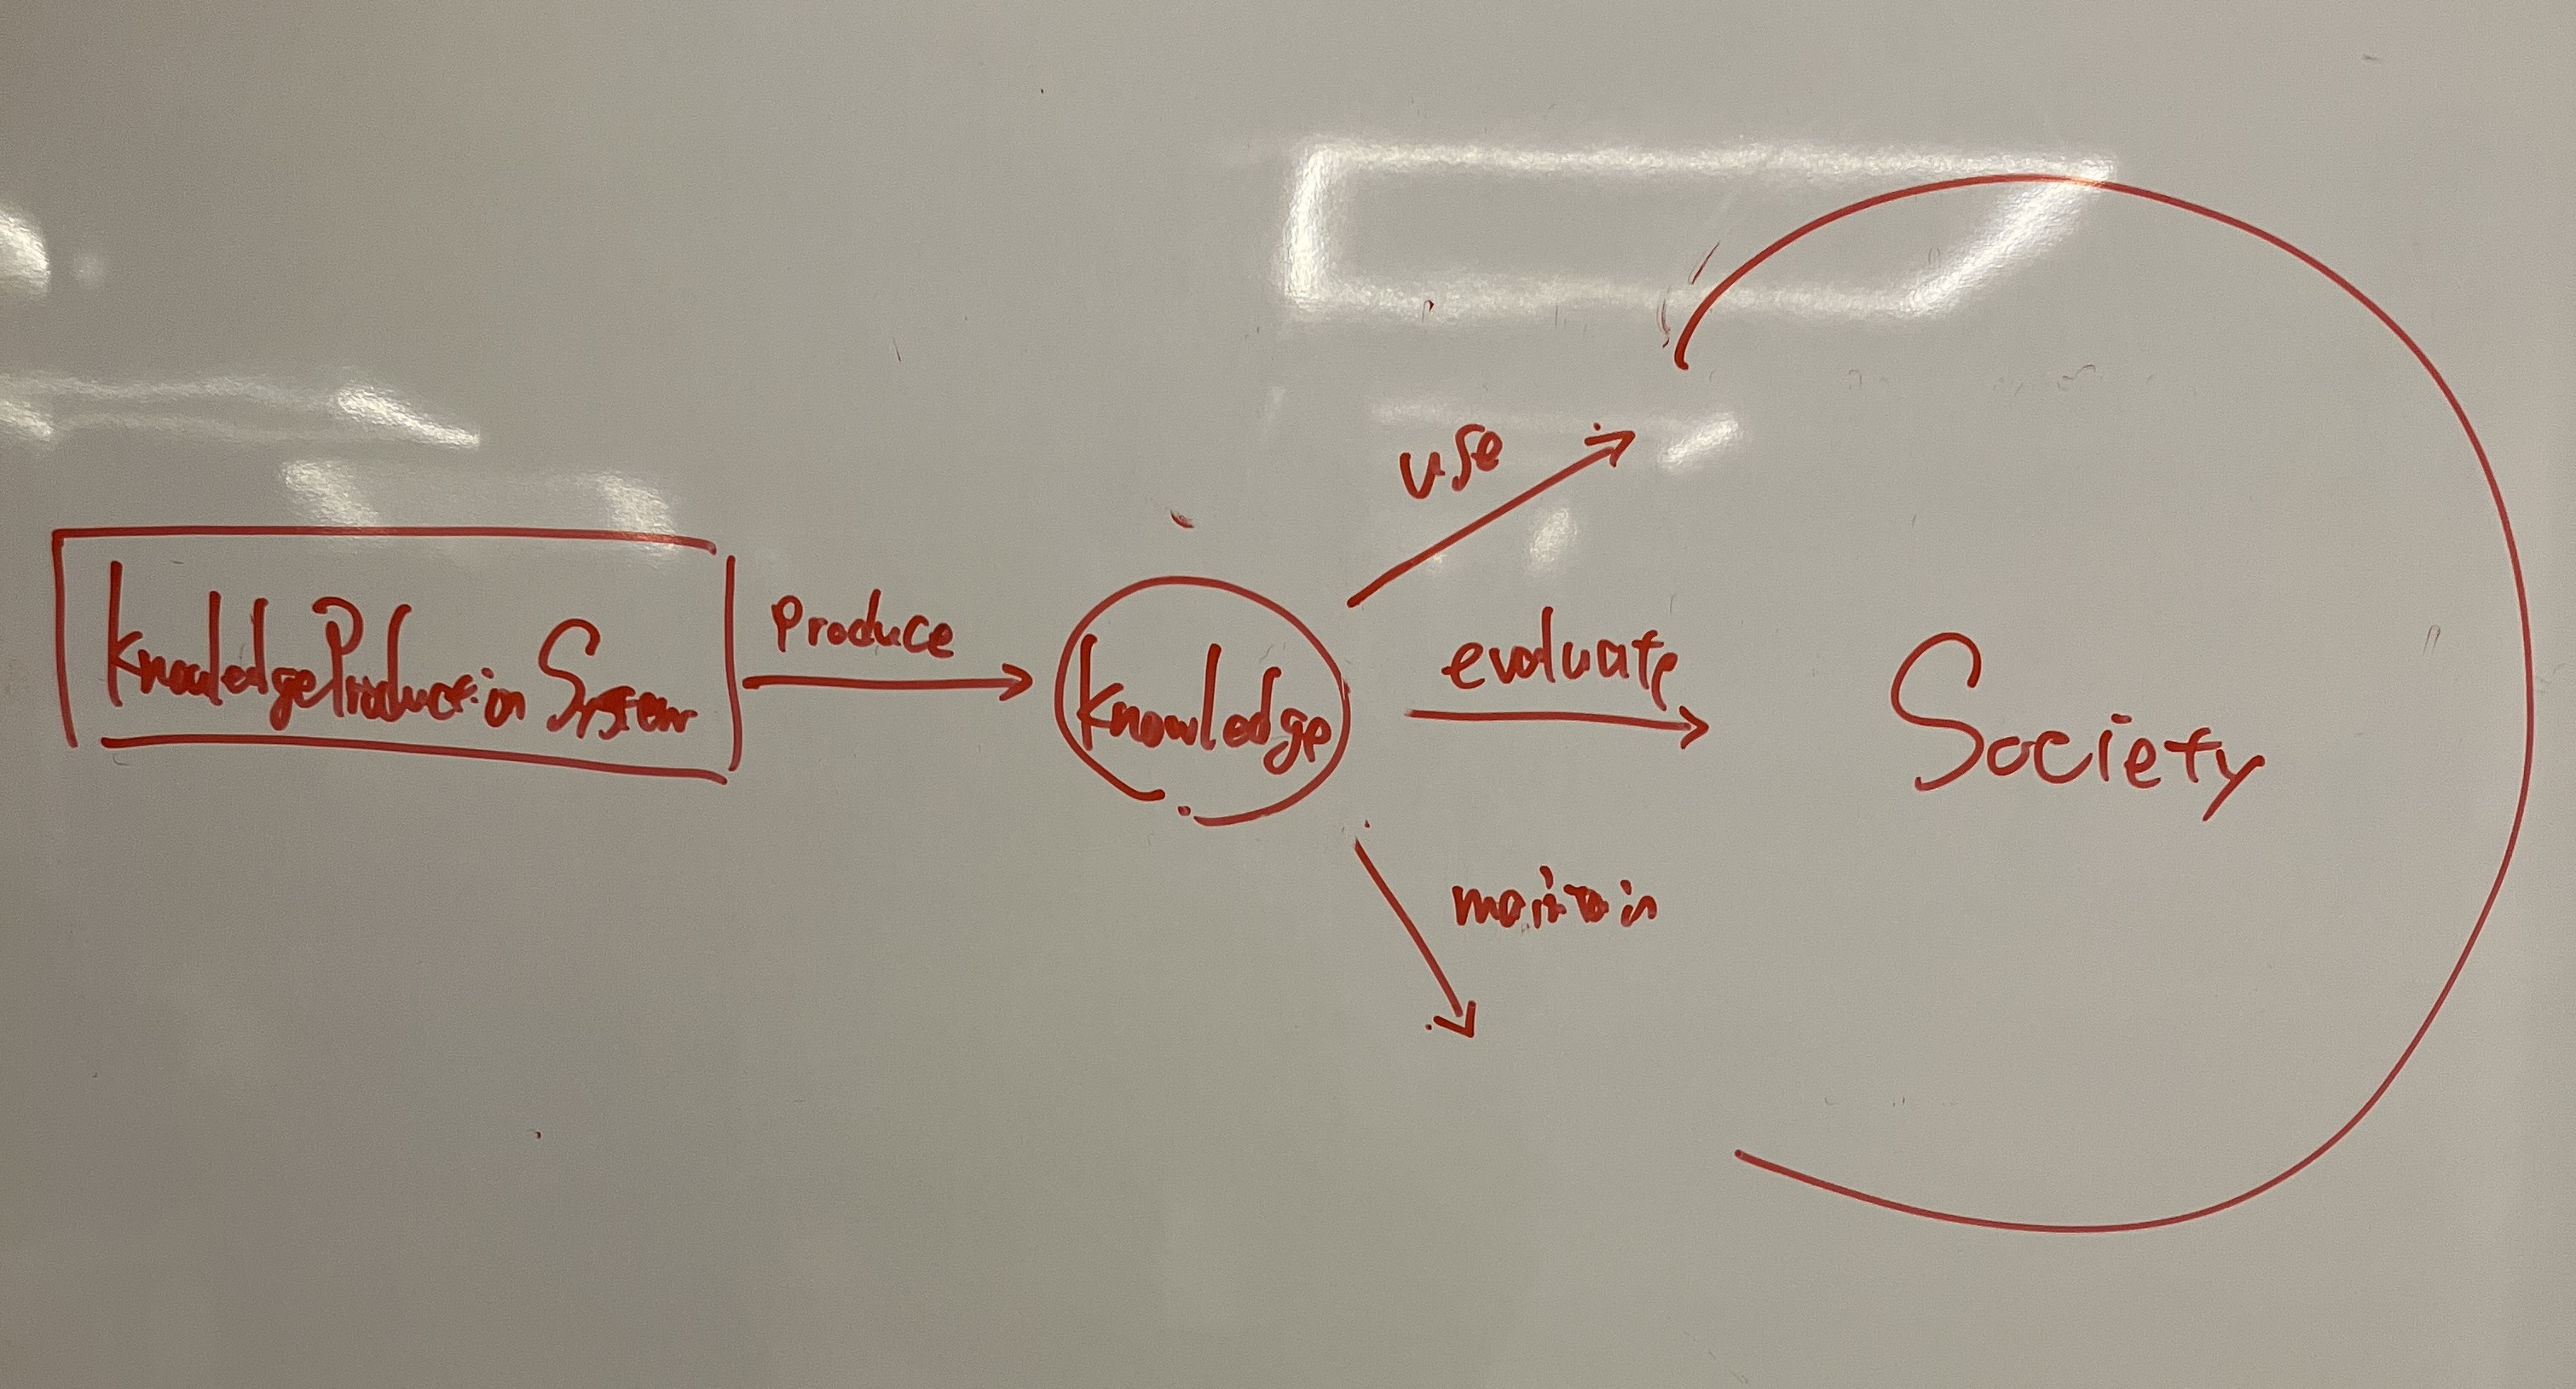 Knowledge Production System
Produce
Knowledge
use
evaluate
maintain
Society